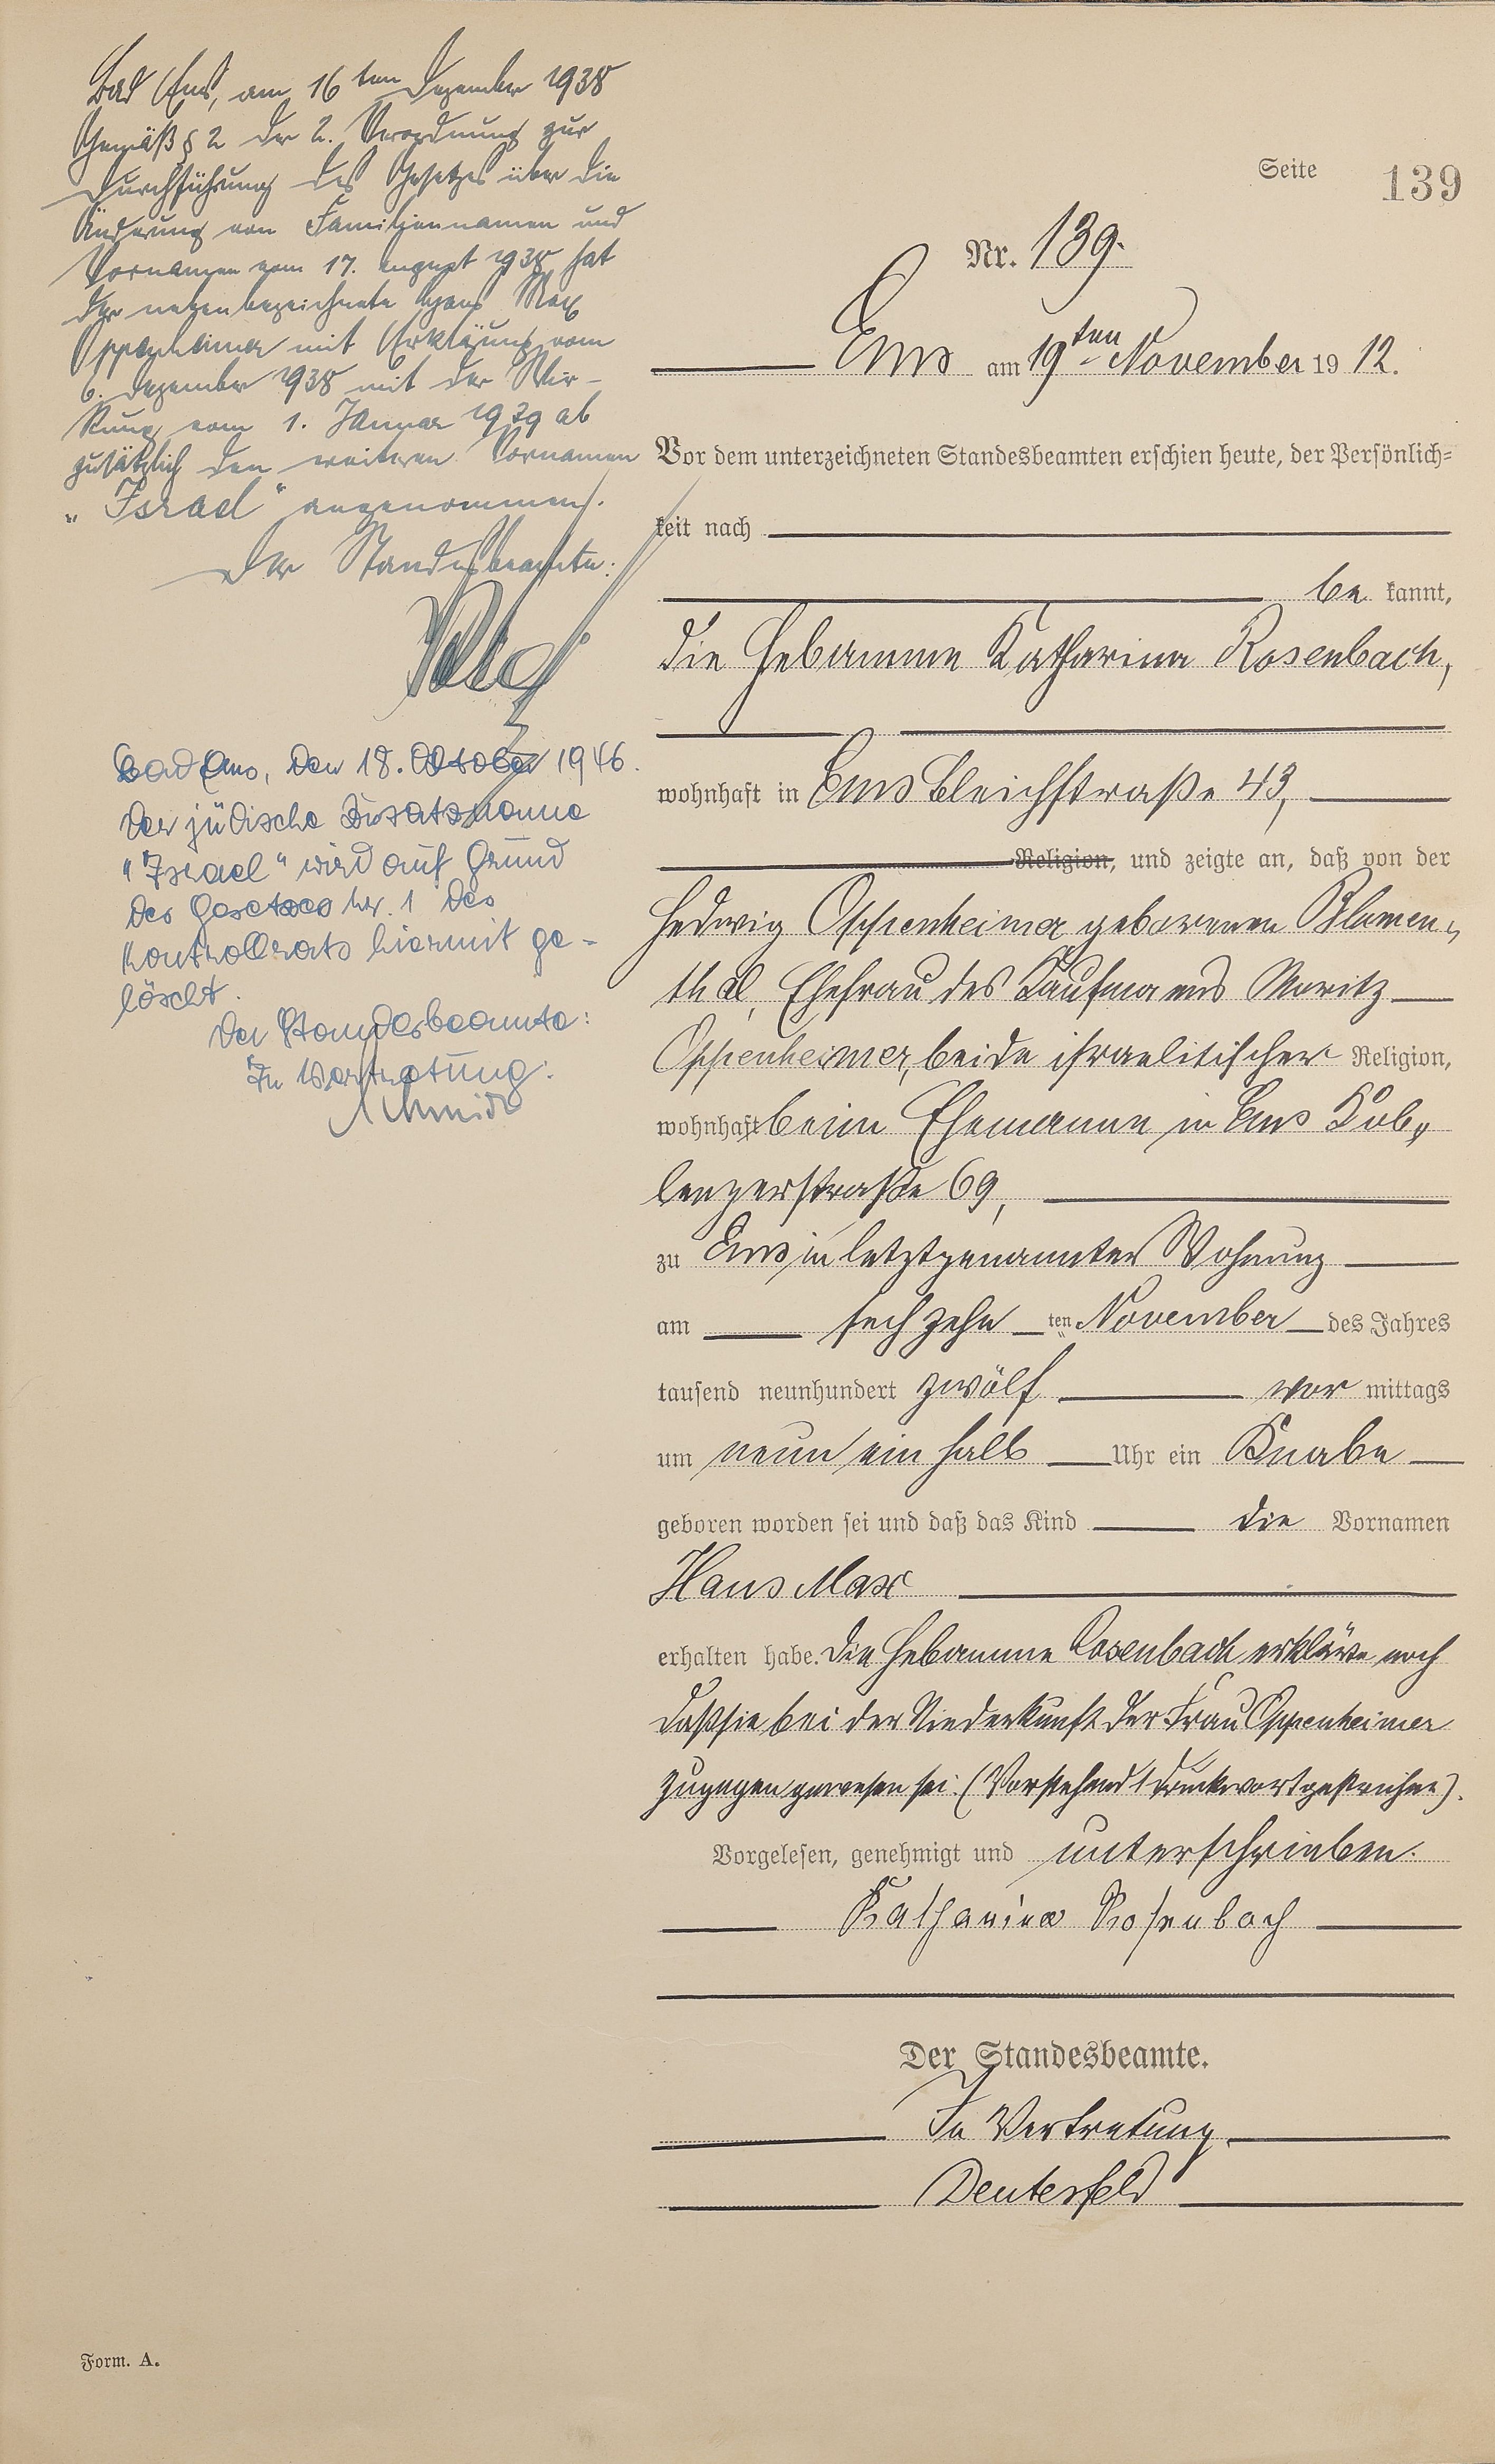 Bad Ems, am 16ten Dezember 1938
Gemäß § 2 der 2. Verordnung zur
Durchführung des Gesetzes über die
Änderung von Familiennamen und
Vornamen vom 17. August 1938 hat
der nebenbezeichnete Hans Max
Oppenheimer mit Erklärung vom
6. Dezember 1938 mit der Wir-
kung vom 1. Januar 1939 ab
zusätzlich den weiteren Vornamen
„Israel" angenommen.
Der Standesbeamte:
Bad Ems, den 18. Oktober 1946.
Der jüdische Zusatzname
"Israel" wird auf Grund
des Gesetzes Nr. 1 des
Kontrollrats hiermit ge-
löscht.
Der Standesbeamte:
In Vertretung:
Schmidt
Seite 139
Nr. 139.
Ems am 19ten November 1912.
Vor dem unterzeichneten Standesbeamten erschien heute, der Persönlich=
keit nach
be kannt,
die Hebamme Katharina Rosenbach,
wohnhaft in Ems Bleichstraße 43,
Religion, und zeigte an, daß von der
Hedwig Oppenheimer geborenen Blumen=
thal, Ehefrau des Kaufmanns Moritz
Oppenheimer, beide israelitischer Religion,
wohnhaft beim Ehemanne in Ems Kob=
lenzerstraße 69,
zu Ems in letztgenannter Wohnung
am sechzehn ten November des Jahres
tausend neunhundert zwölf vor mittags
um neun ein halb Uhr ein Knabe
geboren worden sei und daß das Kind die Vornamen
Hans Max
erhalten habe. Die Hebamme Rosenbach erklärte noch
daß sie bei der Niederkunft der Frau Oppenheimer
zugegen gewesen sei. (Vorstehend 1 Druckwort gestrichen).
Vorgelesen, genehmigt und unterschrieben.
Katharina Rosenbach
Der Standesbeamte.
In Vertretung.
Deutesfeld
Form. A.